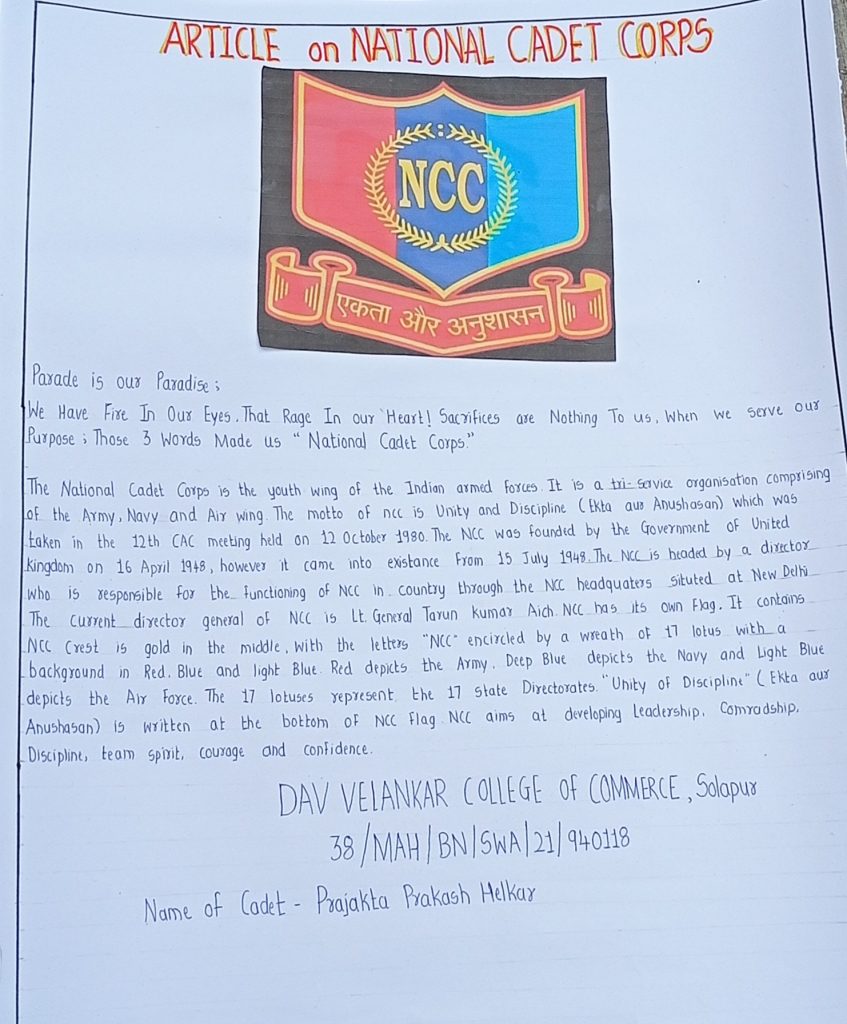 ARTICLE on NATIONAL CADET CORPS
NCC
एकता और अनुशासन
Parade is our Paradise ;
We Have Fire In Our Eyes. That Rage In our Heart! Sacrifices are Nothing To us, When we serve our
Purpose ; Those 3 Words Made us " National Cadet Corps."
The National Cadet Corps is the youth wing of the Indian armed forces. It is a tri-service organisation comprising
of the Army, Navy and Air wing. The motto of ncc is Unity and Discipline (Ekta aur Anushasan) which was
taken in the 12th CAC meeting held on 12 October 1980. The NCC was founded by the Government of United
kingdom on 16 April 1948, however it came into existance from 15 July 1948. The NCC is headed by a director
who is responsible for the functioning of NCC in country through the NCC headquaters situted at New Delhi
The current director general of NCC is Lt. General Tarun kumar Aich. NCC has its own Flag. It contains
NCC Crest is gold in the middle, with the letters "NCC" encircled by a wreath of 17 lotus with a
background in Red. Blue and light Blue. Red depicts the Army. Deep Blue depicts the Navy and Light Blue
depicts the Air Force. The 17 lotuses represent the 17 state Directorates. "Unity of Discipline" ( Ekta aur
Anushasan) is written at the bottom of NCC Flag. NCC aims at developing Leadership, Comradship,
Discipline, team spirit, courage and confidence.
DAV VELANKAR COLLEGE OF COMMERCE, Solapur
38/MAH/BN/SWA/21/940118
Name of Cadet - Prajakta Prakash Helkar